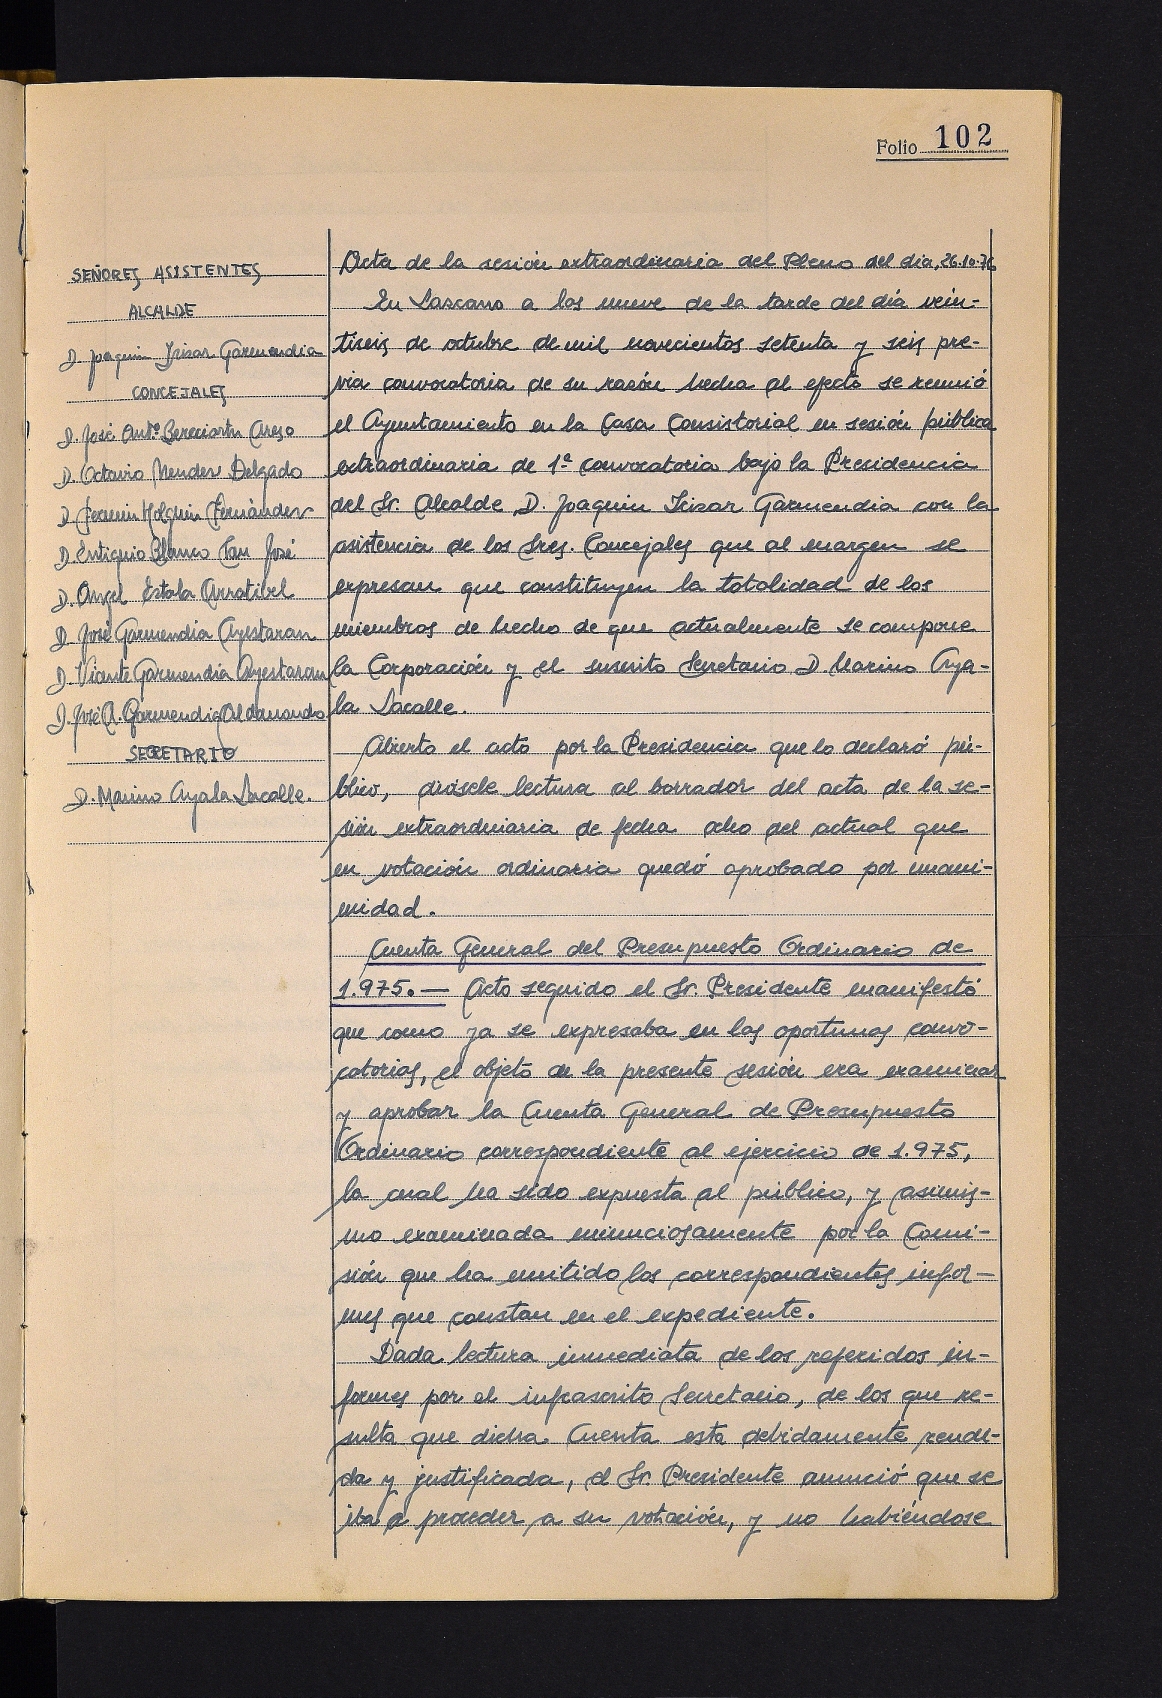 Folio 102
SEÑORES ASISTENTES
ALCALDE
D. Joaquin Irizar Garmendia
CONCEJALES
D. José Antº Bereciartu Areso
D. Octavio Mendes Delgado
D. Fermin Holguin Fernández
D. Eutiquio Blanco San José
D. Angel Estala Arratibel
D. José Garmendia Ayestaran
D. Vicente Garmendia Ayestaran
D. José A. Garmendia Aldanondo
SECRETARIO
D. Marino Ayala Lacalle.
Acta de la sesión extraordinaria del Pleno del dia, 26.10.76
En Lazcano a las nueve de la tarde del día vein-
tiseis de octubre de mil novecientos setenta y seis pre-
via convocatoria de su razón hecha al efecto se reunió
el Ayuntamiento en la Casa Consistorial en sesión pública
extraordinaria de 1ª convocatoria bajo la Presidencia
del Sr. Alcalde D. Joaquin Irizar Garmendia con la
asistencia de los Sres. Concejales que al margen se
expresan que constituyen la totalidad de los
miembros de hecho de que actualmente se compone
la Corporación y el suscrito Secretario D. Marino Aya-
la Lacalle.
Abierto el acto por la Presidencia que lo declaró pú-
blico, diósele lectura al borrador del acta de la se-
sión extraordinaria de fecha ocho del actual que
en votación ordinaria quedó aprobado por unani-
midad.
Cuenta General del Presupuesto Ordinario de
1.975.— Acto seguido el Sr. Presidente manifestó
que como ya se expresaba en las oportunas convo-
catorias, el objeto de la presente sesión era examinar
y aprobar la Cuenta General de Presupuesto
Ordinario correspondiente al ejercicio de 1.975,
la cual ha sido expuesta al público, y asimis-
mo examinada minuciosamente por la Comi-
sión que ha emitido los correspondientes infor-
mes que constan en el expediente.
Dada lectura inmediata de los referidos in-
formes por el infrascrito Secretario, de los que re-
sulta que dicha Cuenta esta debidamente rendi-
da y justificada, el Sr. Presidente anunció que se
iba a proceder a su votación, y no habiéndose